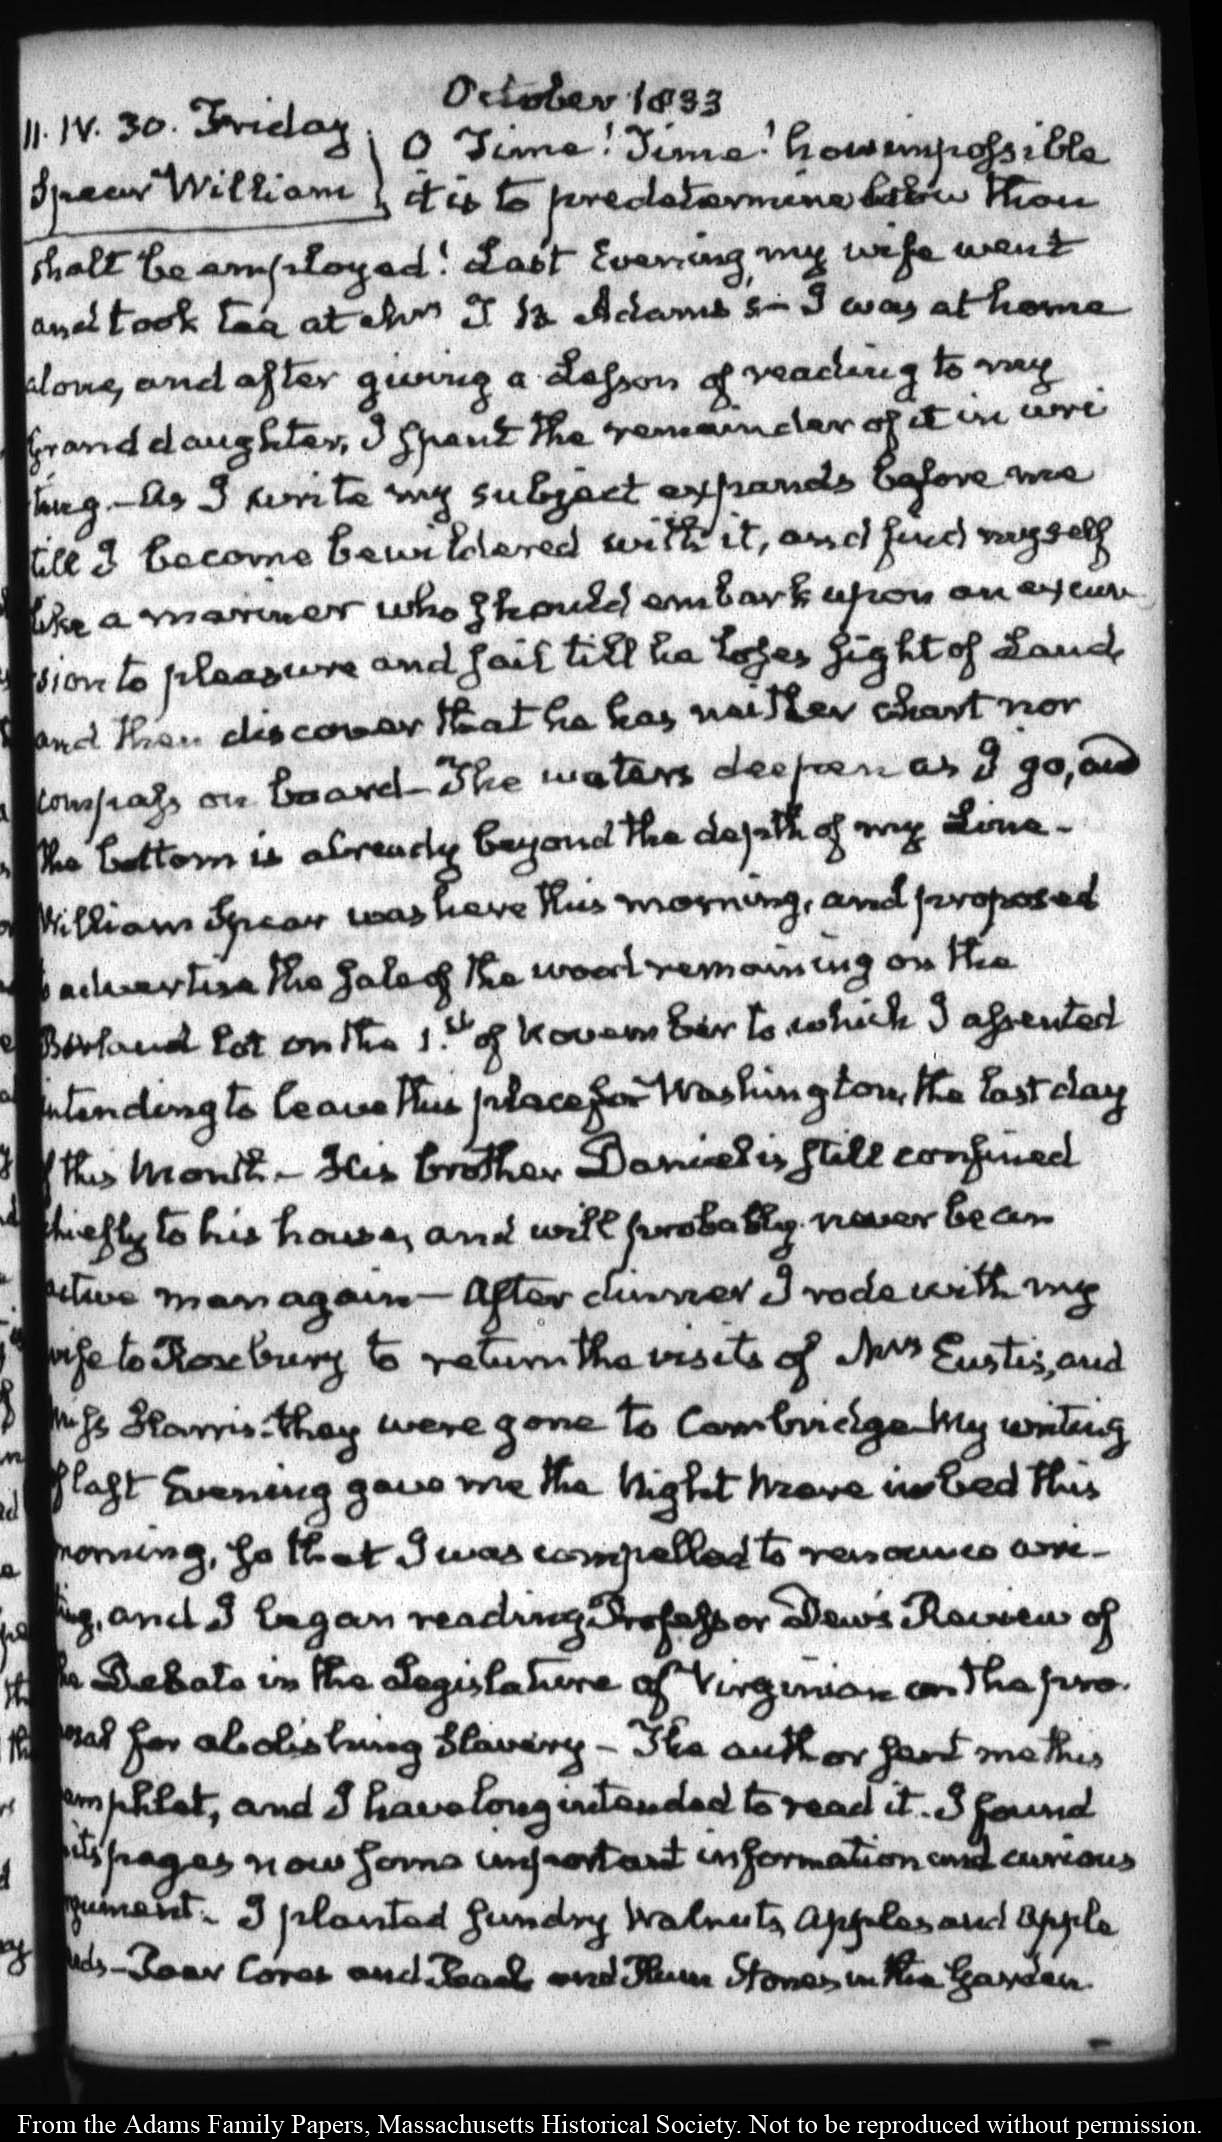 October 1833
11. IV. 30. Friday
Spear William
O Time! Time! how impossible
it is to predetermine how thou
shalt be employed! Last Evening, my wife went
and took tea at Mrs T B Adams's— I was at home
alone, and after giving a Lesson of reading to my
Grand daughter, I spent the remainder of it in wri
ting.— As I write my subject expands before me
till I become bewildered with it, and find myself
like a mariner who should embark upon an excur
sion to pleasure and sail till he loses sight of Land,
and then discover that he has neither chart nor
compass on board— The waters deepen as I go, and
the bottom is already beyond the depth of my Line—
William Spear was here this morning, and proposed
to advertise the sale of the wood remaining on the
Borland lot on the 1.st of November to which I assented
intending to leave this place for Washington, the last day
of this Month— His brother Daniel is still confined
chiefly to his house, and will probably never be an
active man again— After dinner I rode with my
wife to Roxbury to return the visits of Mrs Eustis, and
Miss Harris— they were gone to Cambridge— My writing
of last Evening gave me the Night Mare in bed this
morning, so that I was compelled to renounce wri-
ting, and I began reading Professor Dew's Review of
the Debate in the Legislature of Virginia on the pro.
posal for abolishing Slavery— The author sent me this
pamphlet, and I have long intended to read it. I found
in its pages now some important information and curious
argument.— I planted sundry Walnuts, Apples and Apple
seeds— Pear Cores and Peach and Plum Stones in the Garden.
From the Adams Family Papers, Massachusetts Historical Society. Not to be reproduced without permission.